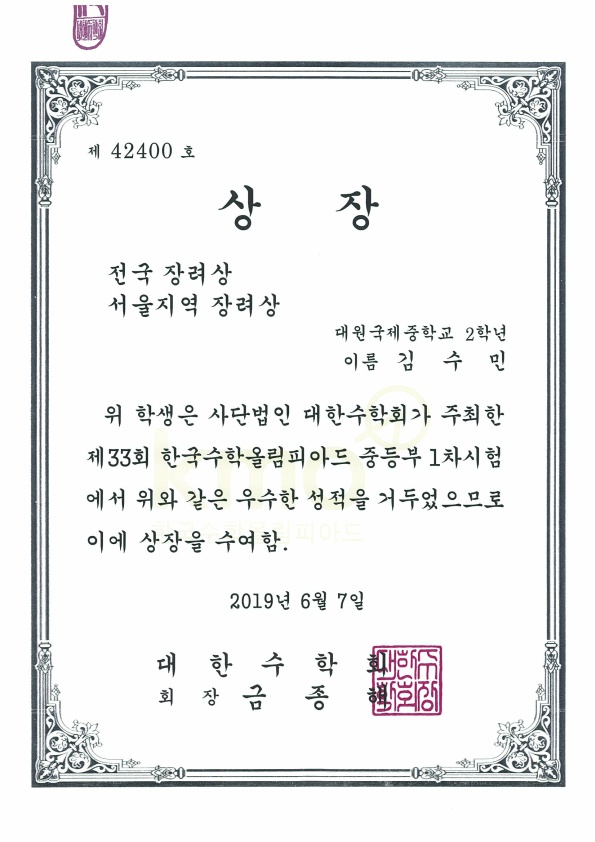 제 42400 호
상 장
전국 장려상
서울지역 장려상
대원국제중학교 2학년
이름 김 수 민
위 학생은 사단법인 대한수학회가 주최한
제33회 한국수학올림피아드 중등부 1차시험
에서 위와 같은 우수한 성적을 거두었으므로
이에 상장을 수여함.
kmo
한국수학올림피아드
2019년 6월 7일
대 한 수 학 회
회 장 금 종 해